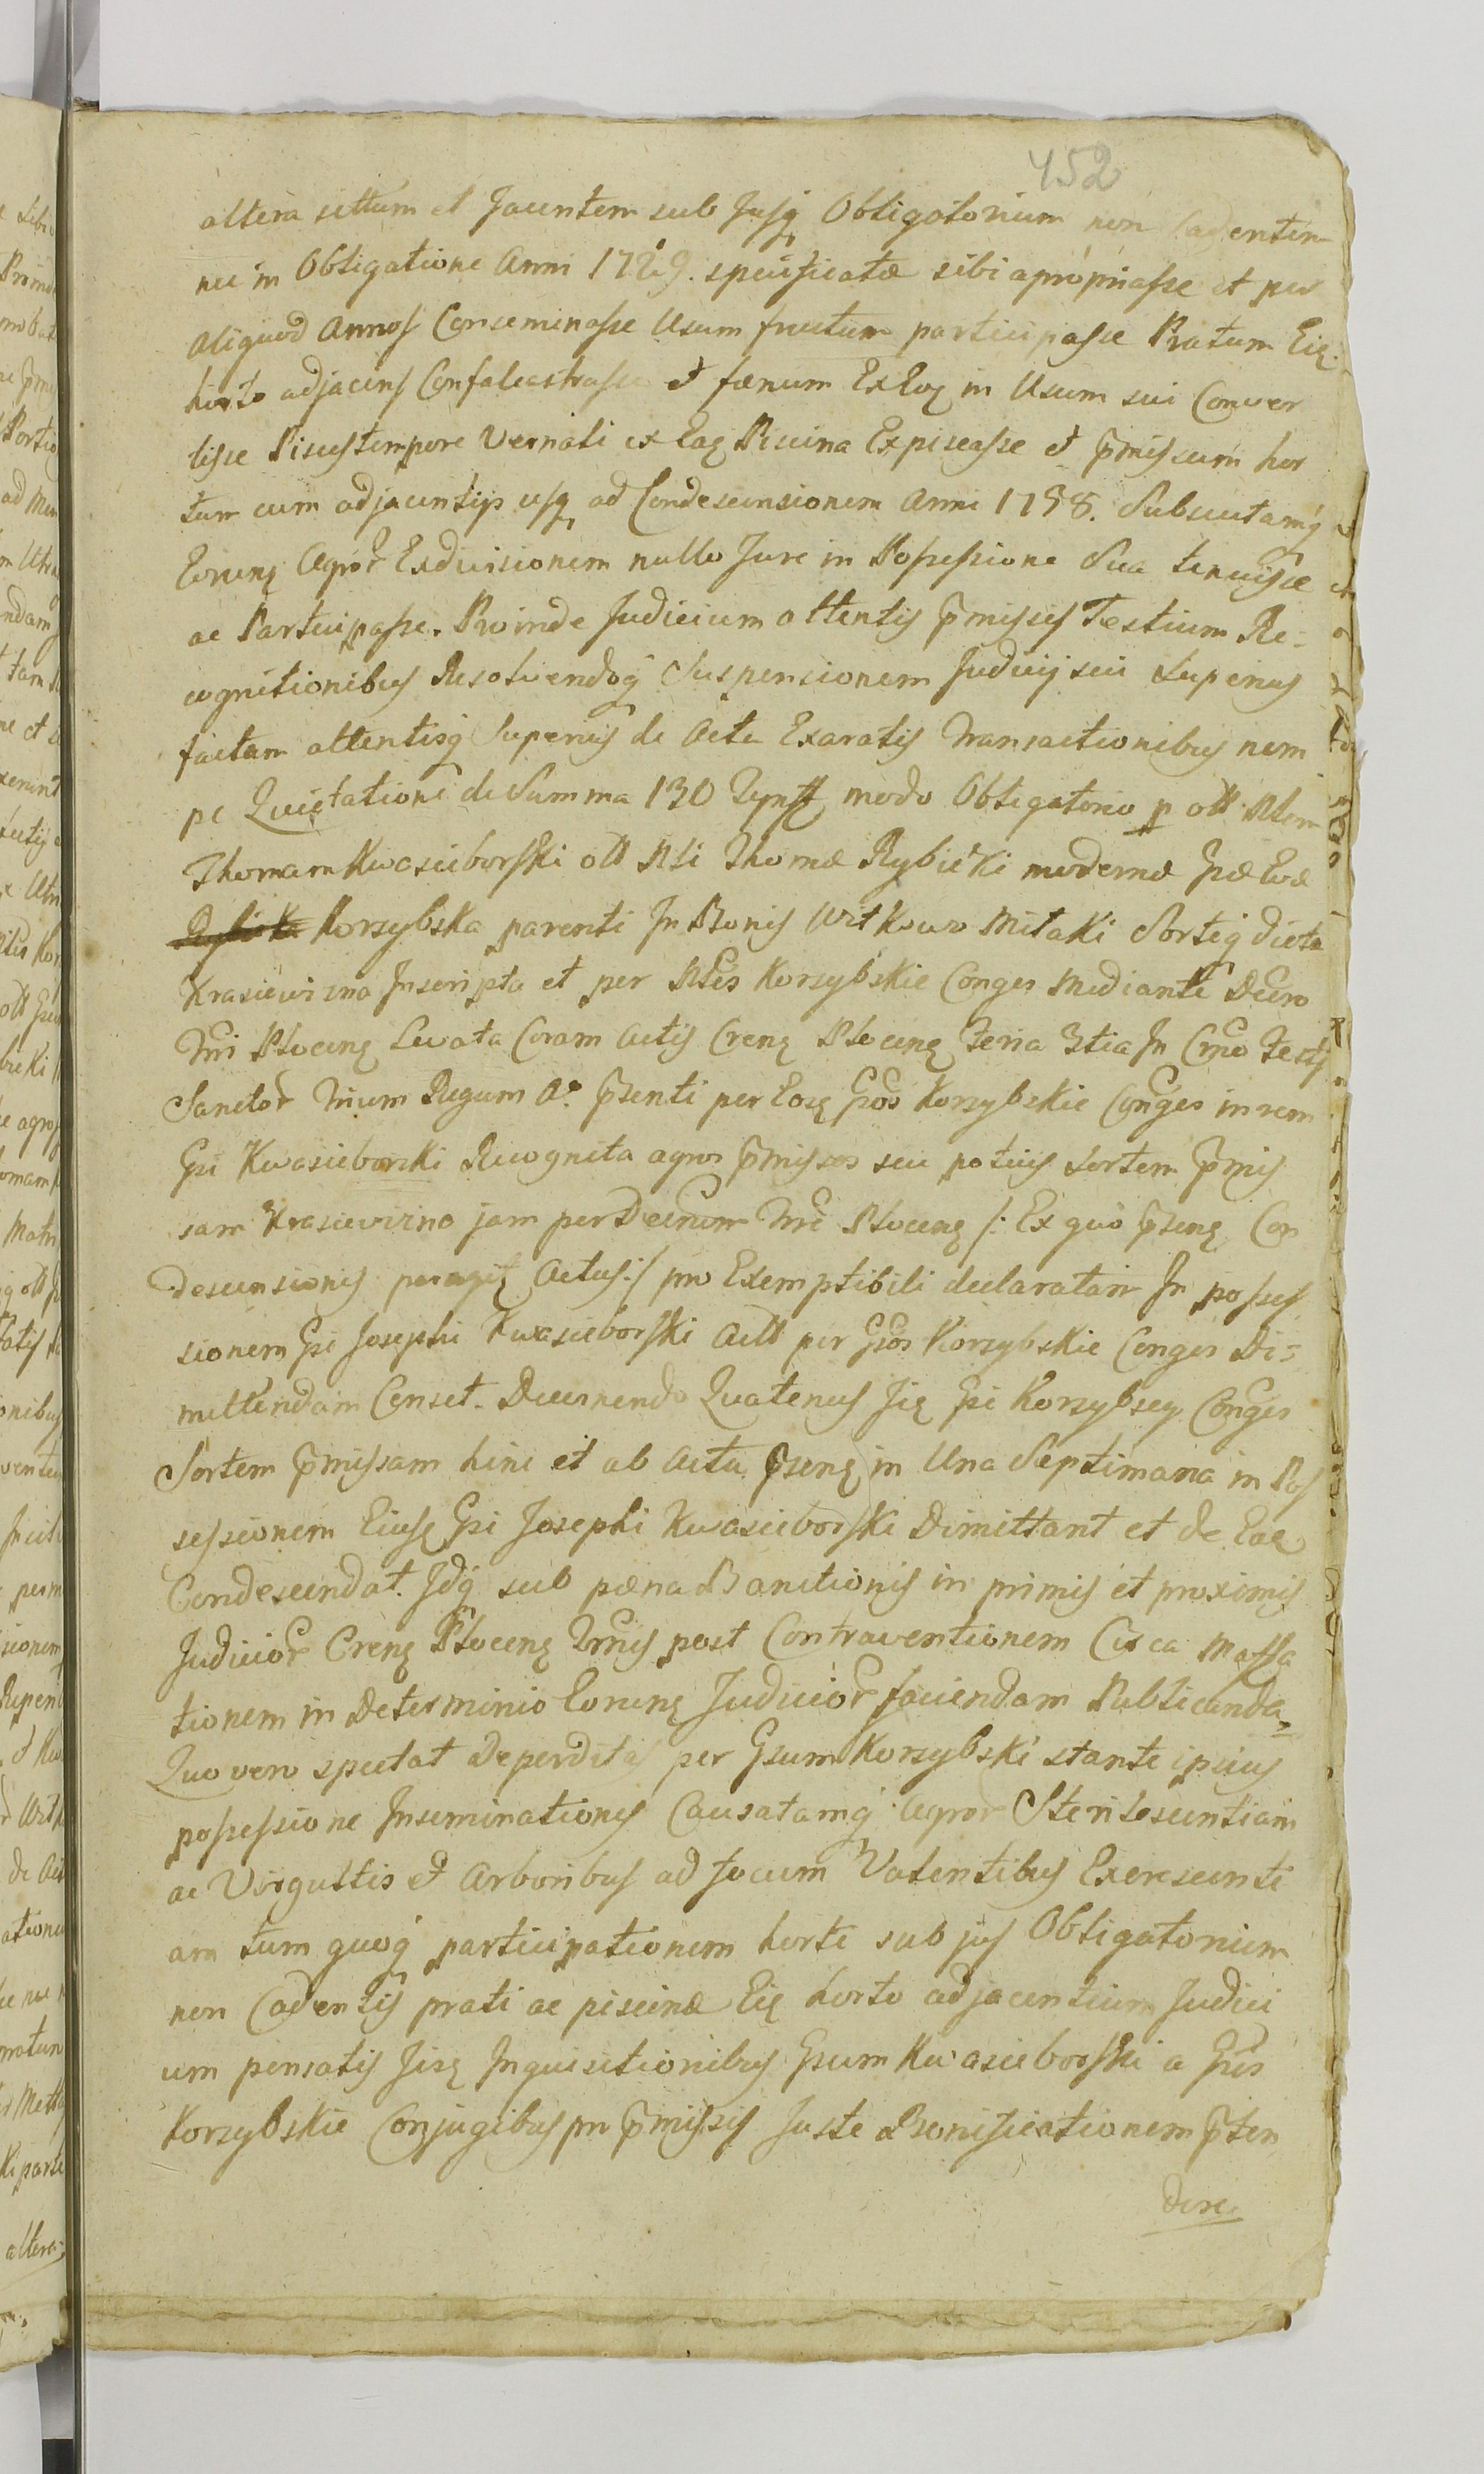 452
altera sittum et Jacentem sub Jusq Obligatorium non Cadentem
nec in Obligatione Anni 1729. specificatæ sibi apropriasse et per
aliquod Annos Conseminasse Usum fructum participasse Pratum Eiq
horto adjacens Confalcastrasse et fænum ExEoq in Usum sui Conver
tisse Pisces tempore Vernali ex Eaq Piscina Expiscasse et pmissum hor
tum cum adjacentijs usq ad Condescensionem Anni 1758. Subsecutamq
Eorunq Agror Exdivisionem nullo Jure in Possessione Sua tenuisse
ac Participasse. Proinde Judicium attentis pmissis Testium Re-
cognitionibus Resolvendoq Suspensionem Judicij sui Superius
factam attentisq Superius de Actu Exaratis Transactionibus nem
pe Quietatione de Summa 130 modo Obligatorio p olt Nlem
Thomam Kwasieborski olt Nli Thomæ Rybicki modernæ Gsæ Evæ
Korzybska parenti In Bonis Witkowo Mitaki Sortiq dicta
Krasiewizna Inscripta et per Nles Korzybskie Conges Mediante Decro
Tri Plocenq Levata Coram Actis Crenq Plocenq feria 3tia In Crno Festi
Sanctor Trium Regum Ao psenti per Eosq Gsos Korzybskie Conges in rem
Gsi Kwasieborski Recognita agros pmissos seu potius Sortem pmis
sam Krasiewizna jam per Decrum Tri Plocenq /: Ex quo psenq Con
descensionis peragiq Actus :/ pro Exemptibili declaratam In posses
sionem Gsi Josephi Kwasieborski Actt per Gsos Korzybskie Conges Di-
mittendam Censet. Decernendo Quatenus Jiq Gsi Korzybscy Conges
Sortem pmissam hinc et ab Actu psenq in Una Septimana in Pos
sessionem Eiusq Gsi Josephi Kwasieborski Dimittant et de Eaq
Condescendat. Jdq sub pæna Banitionis in primis et proximis
Judicior Crenq Plocenq Trnis post Contraventionem Circa Massa
tionem in Determinio Eorunq Judicior faciendam Publicanda
Quo vero spectat Deperdita per Gsum Korzybski stante ipsius
possessione Inseminationis Causatamq Agror Sterilescentiam
ac Virgultis et Arboribus ad focum Valentibus Excrescenti
am tum quoq participationem horti sub jus Obligatorium
non Cadentis prati ac piscinæ Eiq horto adjacentium Judici
um pensatis Jisq Inquisitionibus Gsum Kwasieborski a Gsis
Korzybskie Conjugibus pro pmissis Juste Bonificationem pten
dere